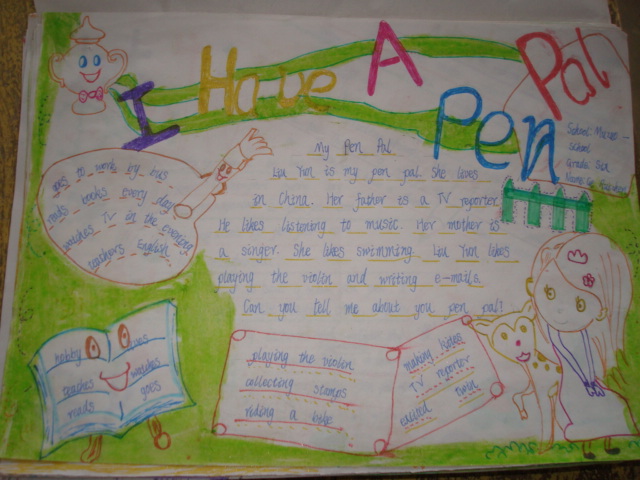 I Have A Pen Pal
School:
School
Grade: Six
Name:
My Pen Pal
Liu Yun is my pen pal. She lives
in China. Her father is a TV reporter.
He likes listening to music. Her mother is
a singer. She likes swimming. Liu Yun likes
playing the violin and writing e-mails.
Can you tell me about you pen pal?
goes to work by bus
reads books every day
watches TV in the evening
teachers English
hobby
teaches
reads
lives
watches
goes
playing the violin
collecting stamps
riding a bike
making kites
TV reporter
twin